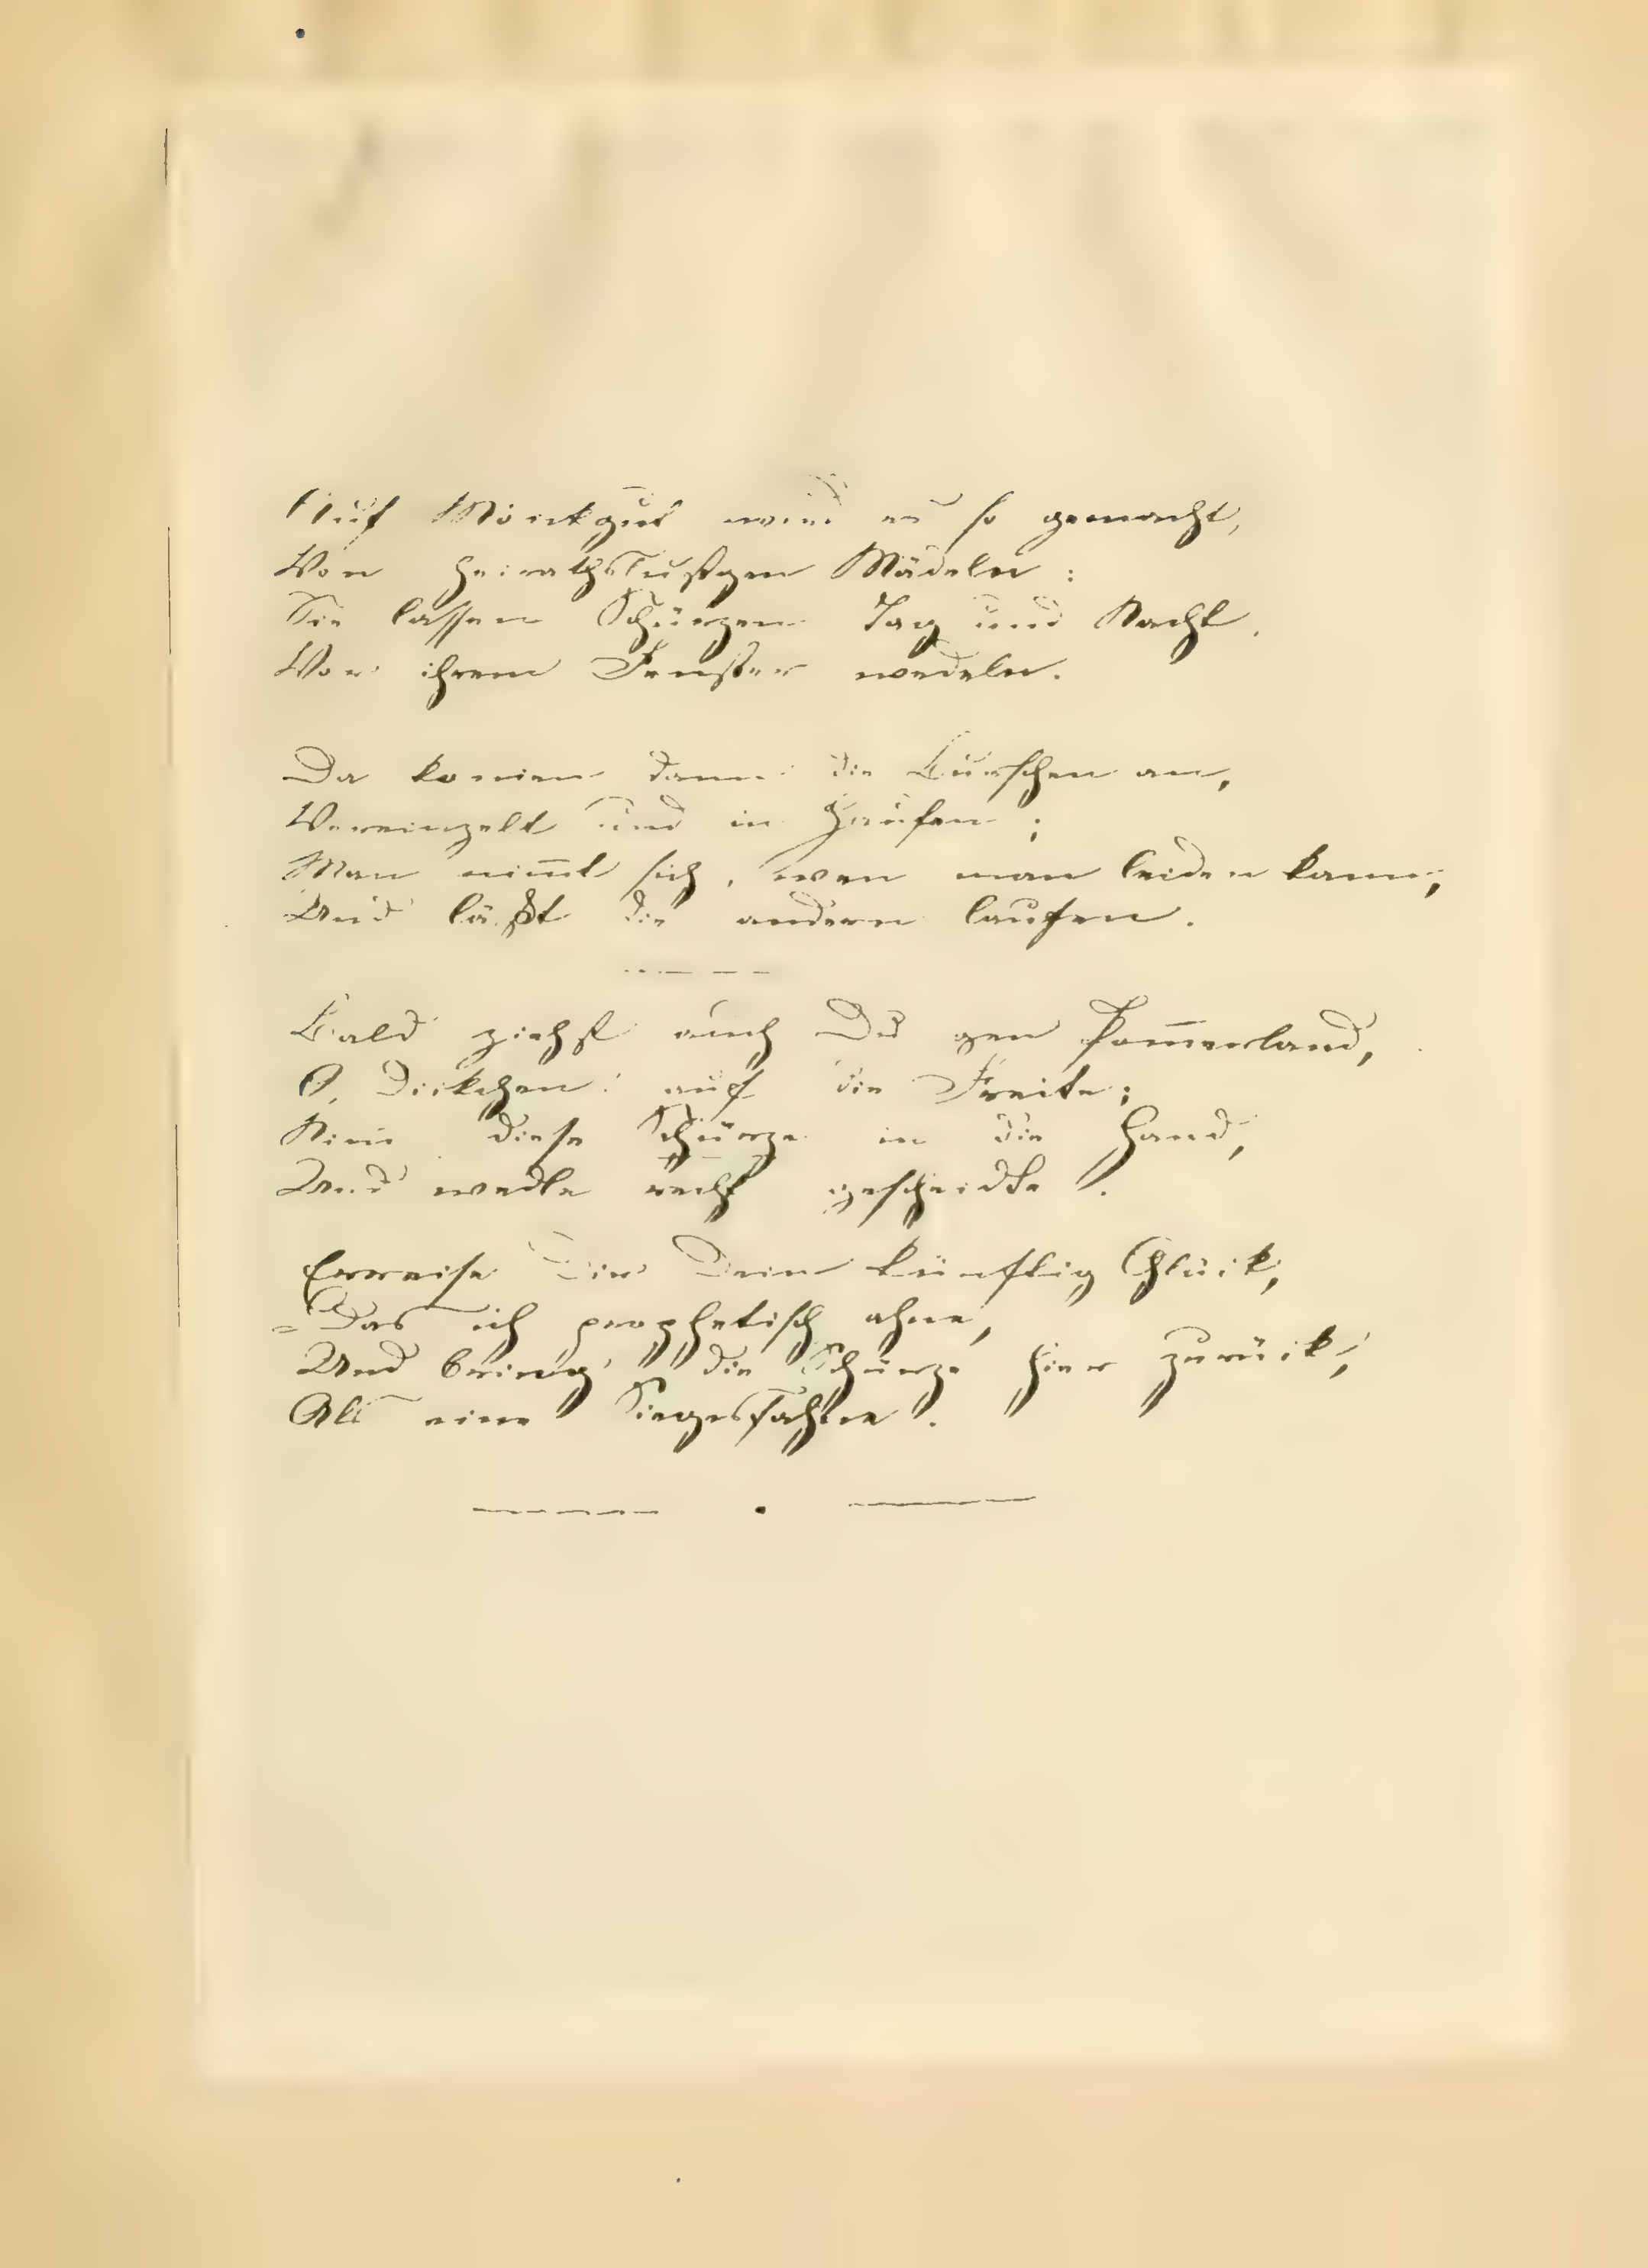 Auf Mönkgut wird es so gemacht,
Von heirathslust'gen Mädeln:
Sie lassen Schürzen Tag und Nacht
Vor ihrem Fenster wedeln.
Da kom̅en dann die Burschen an,
Vereinzelt und in Haufen;
Man nim̅t sich, wen man leiden kann,
Und läßt die andern laufen.
Bald ziehst auch Du gen Pom̅erland,
O, Dickchen! auf die Freite;
Nim̅ diese Schürze in die Hand,
Und wedle recht gescheidte.
Erweise Dir Dein künftig Glück,
Das ich prophetisch ahne,
Und bring' die Schürze hier zurück,
Als eine Siegesfahne.